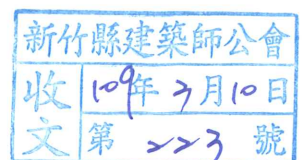 新竹縣建築師公會
收文
109年3月10日
第223號